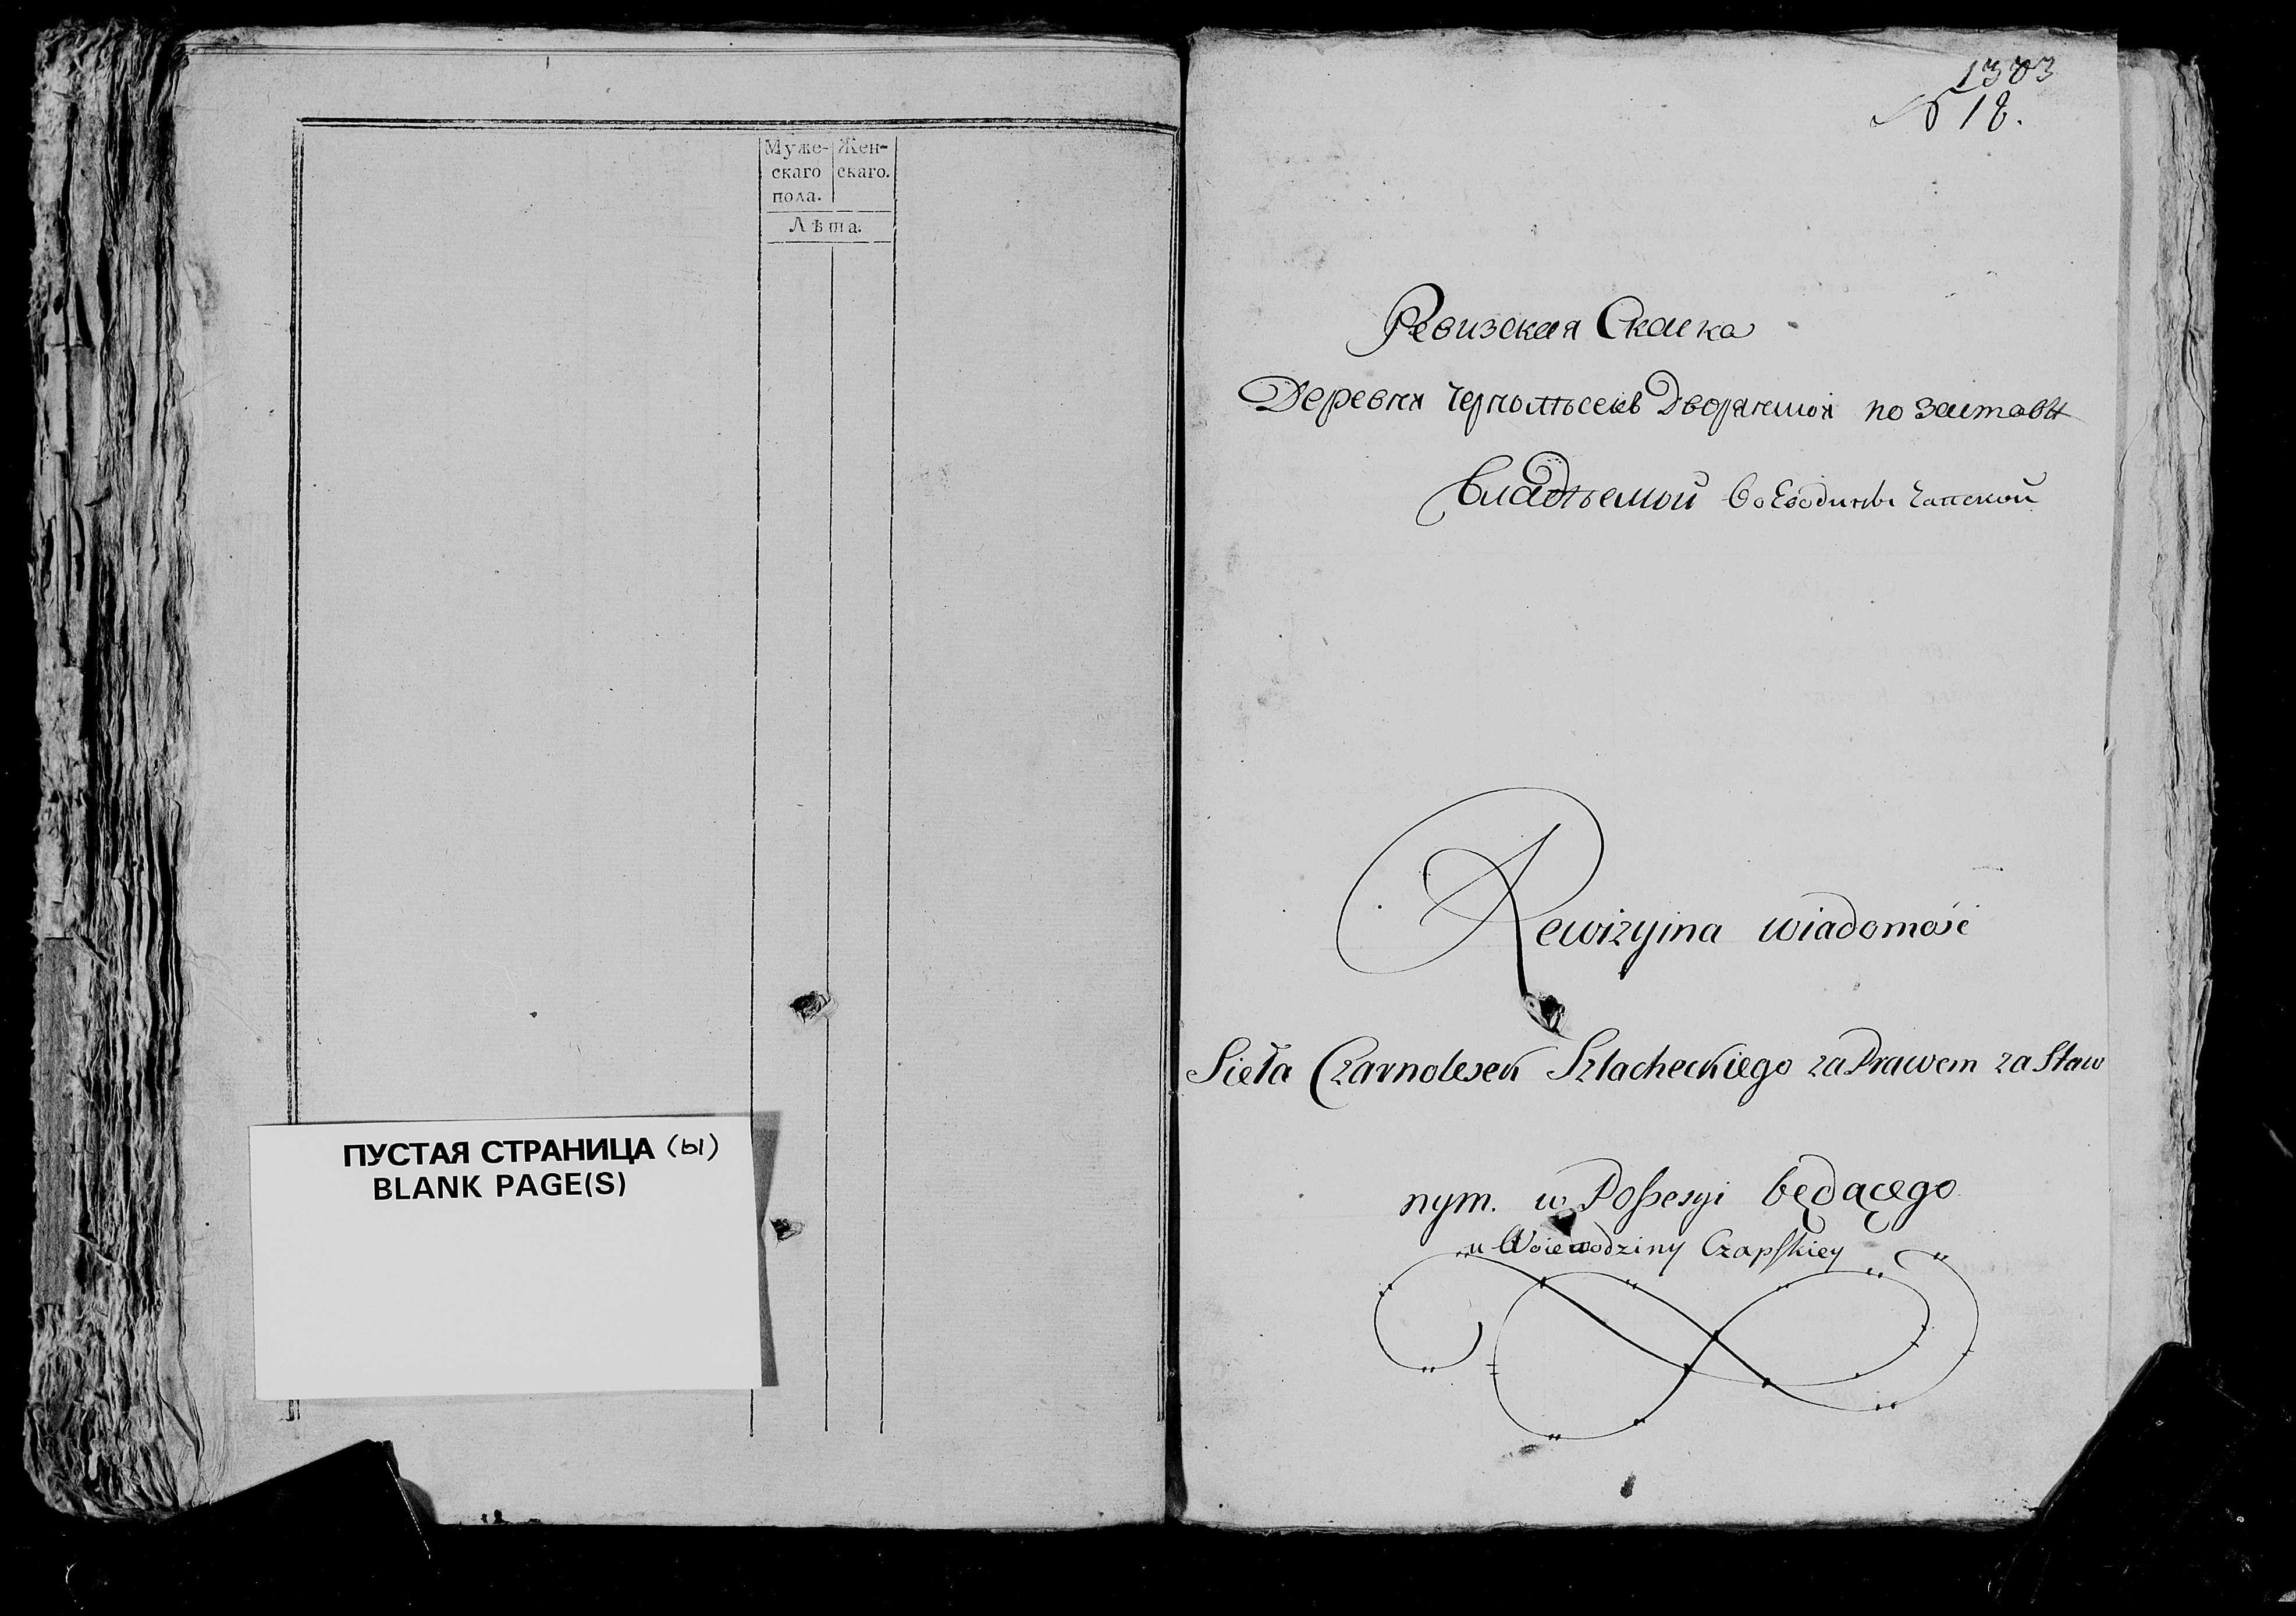 Муже- Жен-
скаго скаго.
пола.
Лѣта.
ПУСТАЯ СТРАНИЦА (ы)
BLANK PAGE(S)
1303
№ 18.
Ревизская Скаска
Деревня Чернолѣсекъ Дворянской по заставѣ
владѣемой воеводины Чапской
Rewizyina wiadomość
Sieła Czarnolesek Szlacheckiego za Prawem za Staw
nym. w Poßesyi będącego
u Woiewodziny Czapskiey